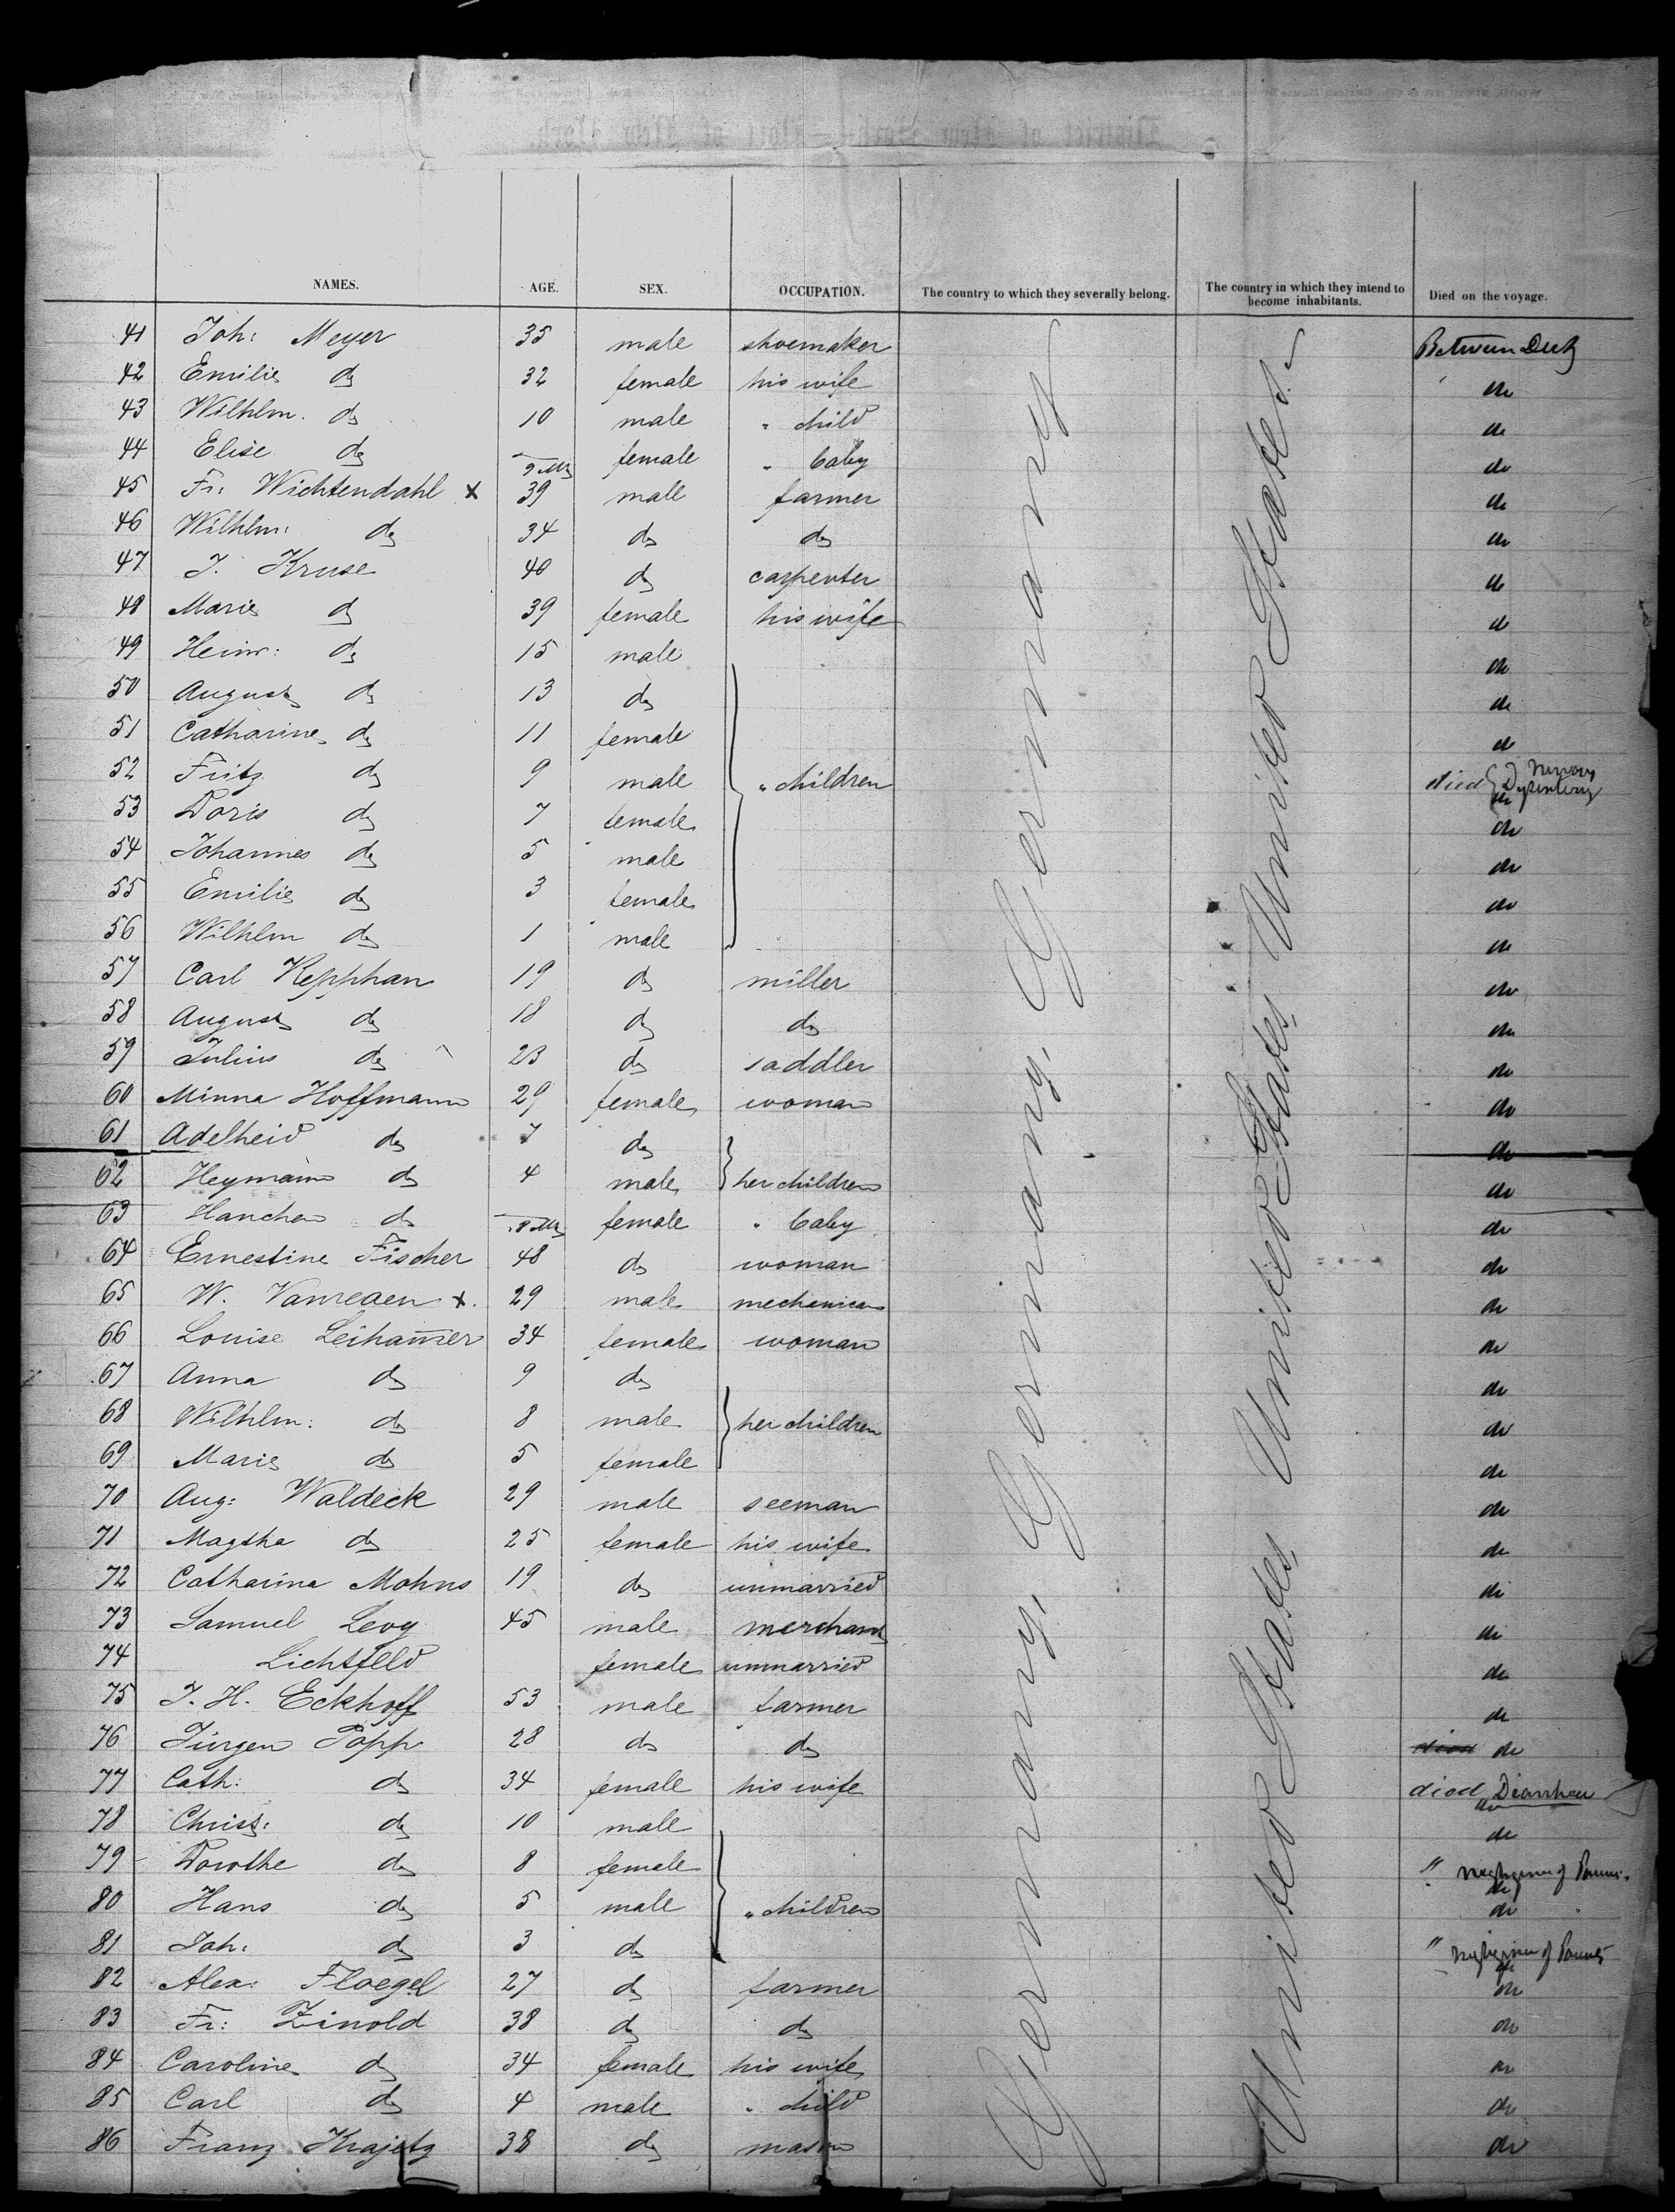 NAMES. AGE. SEX. OCCUPATION. The country to which they severally belong. The country in which they intend to become inhabitants. Died on the voyage.
Germany, Germany, Germany, Germany
United States, United States, United States, United States.
41 Joh: Meyer 35 male shoemaker Between Deck
42 Emilie do 32 female his wife do
43 Wilhlm. do 10 male " child do
44 Elise do 9 Ms female " baby do
45 Fr: Wichtendahl x 39 male farmer do
46 Wilhlm: do 34 do do do
47 J. Kruse 40 do carpenter do
48 Marie do 39 female his wife do
49 Heinr: do 15 male do
50 August do 13 do do
51 Catharine do 11 female do
52 Fritz do 9 male " children died Nervous Dysentery do
53 Doris do 7 female do
54 Johannes do 5 male do
55 Emilie do 3 female do
56 Wilhlm do 1 male do
57 Carl Kepphan 19 do miller do
58 August do 18 do do do
59 Julius do 23 do saddler do
60 Minna Hoffmann 29 female woman do
61 Adelheid do 7 do do
62 Heymann do 4 male her children do
63 Hanchen do 8 Ms female " baby do
64 Ernestine Fischer 48 do woman do
65 W. Vanreaen x. 29 male mechanican do
66 Louise Leihammer 34 female woman do
67 Anna do 9 do do
68 Wilhlm: do 8 male her children do
69 Marie do 5 female do
70 Aug: Waldeck 29 male seeman do
71 Magtha do 25 female his wife do
72 Catharina Mohns 19 do unmarried do
73 Samuel Levy 45 male merchant do
74 Lichtfeld female unmarried do
75 J. H. Eckhoff 53 male farmer do
76 Jürgen Popp 28 do do died do
77 Cath: do 34 female his wife died Diarrhoea do
78 Christ: do 10 male do
79 Dorothe do 8 female " of do
80 Hans do 5 male " children do
81 Joh: do 3 do " of do
82 Alex: Floegel 27 do farmer do
83 Fr: Zinold 38 do do do
84 Caroline do 34 female his wife do
85 Carl do 4 male " child do
86 Franz Krajetz 38 do mason do